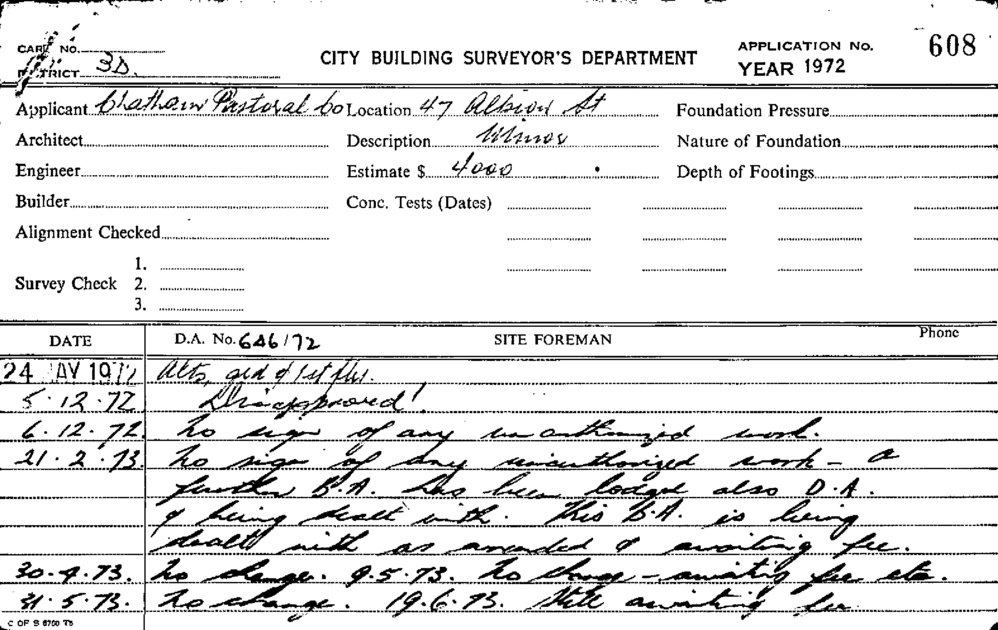 CARD NO.
DISTRICT 3D.
CITY BUILDING SURVEYOR'S DEPARTMENT
APPLICATION No. 608
YEAR 1972
Applicant Chatham Pastoral Co Location 47 Albion St Foundation Pressure
Architect Description Minor Nature of Foundation
Engineer Estimate $ 4000 Depth of Footings
Builder Conc. Tests (Dates)
Alignment Checked
Survey Check 1.
2.
3.
DATE D.A. No. 646/72 SITE FOREMAN Phone
24 MAY 1972 Alts, grd & 1st flrs.
5.12.72 Disapproved!
6.12.72. No sign of any unauthorized work.
21.2.73. No sign of any unauthorized work – a
further B.A. has been lodged also D.A.
& being dealt with. This B.A. is being
dealt with as amended & awaiting fee.
30.4.73. No change. 9.5.73. No change – awaiting fee etc.
31.5.73. No change. 19.6.73. Still awaiting fee.
C OF S 6750 T5